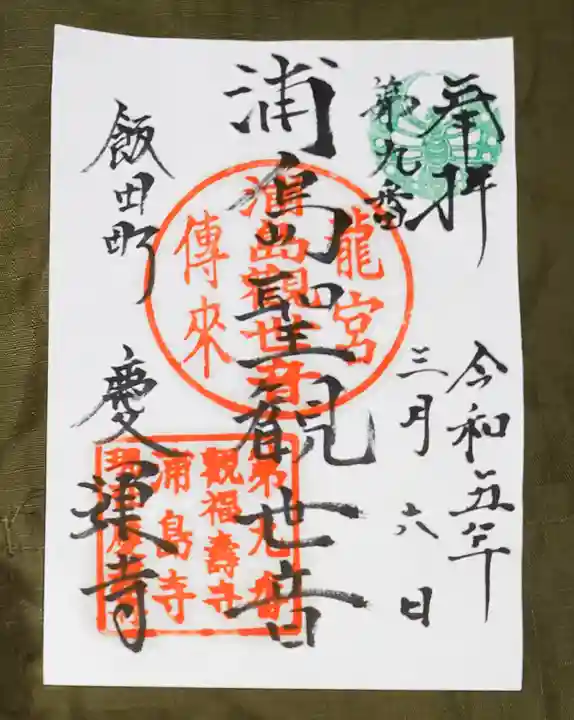 奉拝
第九番
令和五年
三月六日
浦島聖観世音
龍宮
浦島觀世音
傳來
飯田町
慶運寺
第九番
観福壽寺
浦島寺